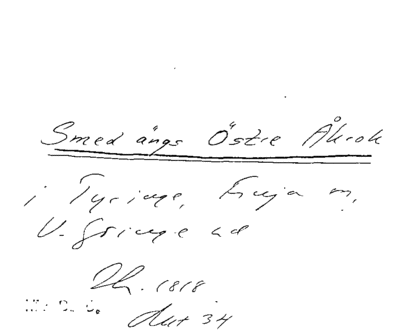 Smedängs Östre Åkrok
i Tyringe, Finja m,
V. Göinge hd
Th. 1818
Akt 34